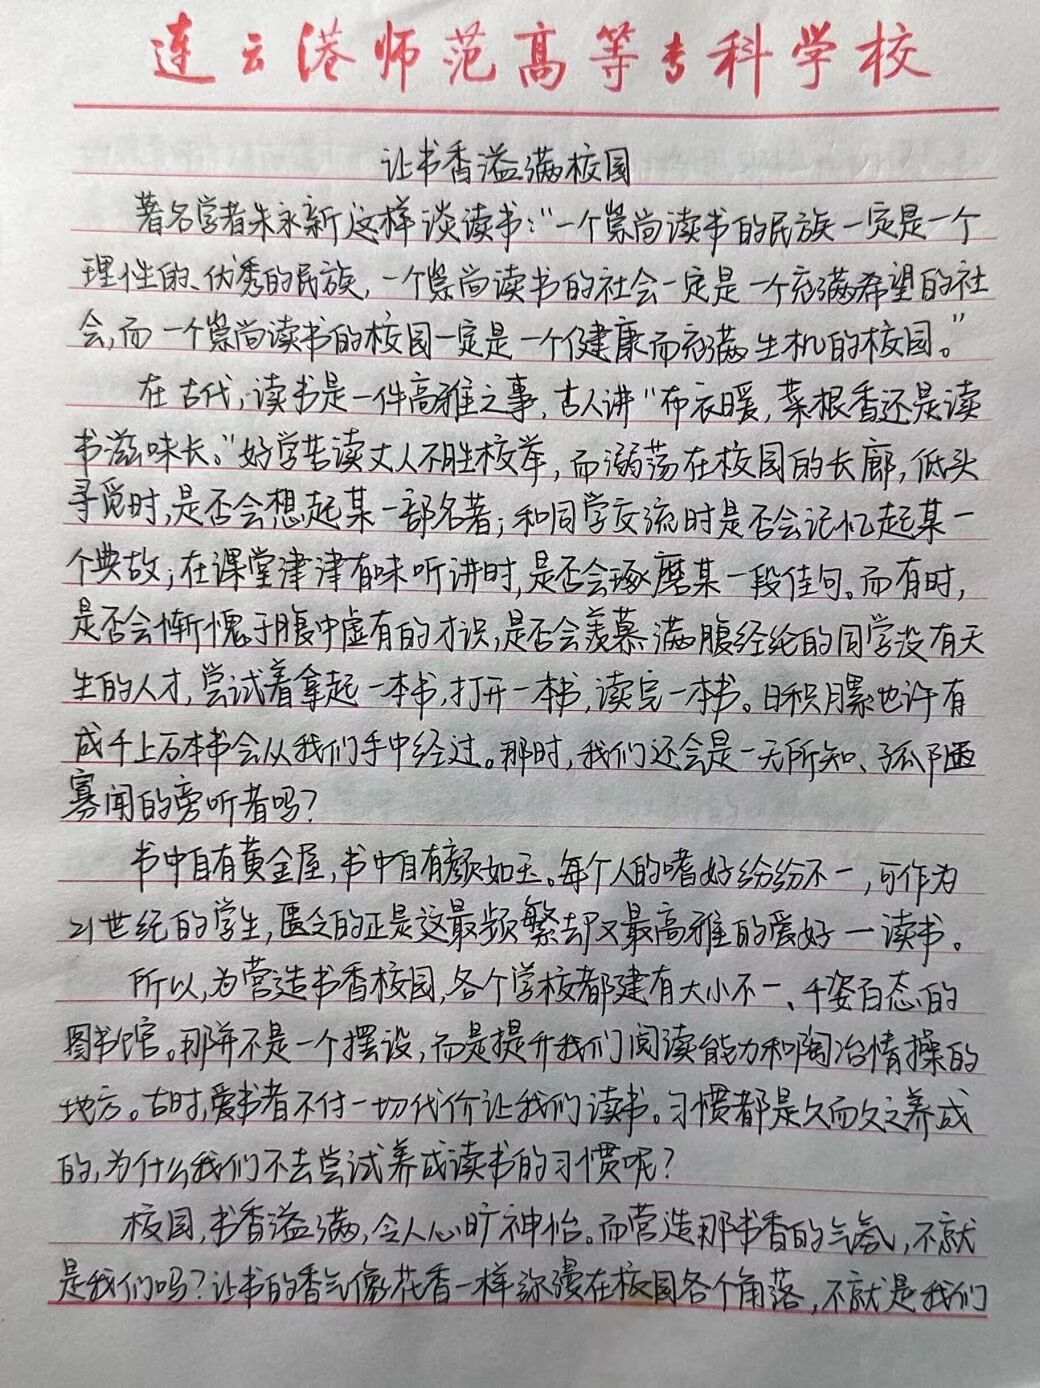 连云港师范高等专科学校
让书香溢满校园
著名学者朱永新这样谈读书:“一个崇尚读书的民族一定是一个
理性的、优秀的民族，一个崇尚读书的社会一定是一个充满希望的社
会，而一个崇尚读书的校园一定是一个健康而充满生机的校园。”
在古代，读书是一件高雅之事，古人讲“布衣暖，菜根香还是读
书滋味长。”好学苦读丈人不胜校举，而溺荡在校园的长廊，低头
寻觅时，是否会想起某一部名著；和同学交流时是否会记忆起某一
个典故；在课堂津津有味听讲时，是否会琢磨某一段佳句。而有时，
是否会惭愧于腹中虚有的才识，是否会羡慕满腹经纶的同学没有天
生的人才，尝试着拿起一本书，打开一本书，读完一本书。日积月累也许有
成千上万本书会从我们手中经过。那时，我们还会是一无所知、孤陋
寡闻的旁听者吗？
书中自有黄金屋，书中自有颜如玉。每个人的嗜好纷纷不一，可作为
21世纪的学生，匮乏的正是这最频繁却又最高雅的爱好一读书。
所以，为营造书香校园，各个学校都建有大小不一、千姿百态的
图书馆。那并不是一个摆设，而是提升我们阅读能力和陶冶情操的
地方。古时，爱书者不付一切代价让我们读书。习惯都是久而久之养成
的，为什么我们不去尝试养成读书的习惯呢？
校园，书香溢满，令人心旷神怡。而营造那书香的气氛，不就
是我们吗？让书的香气像花香一样弥漫在校园各个角落，不就是我们